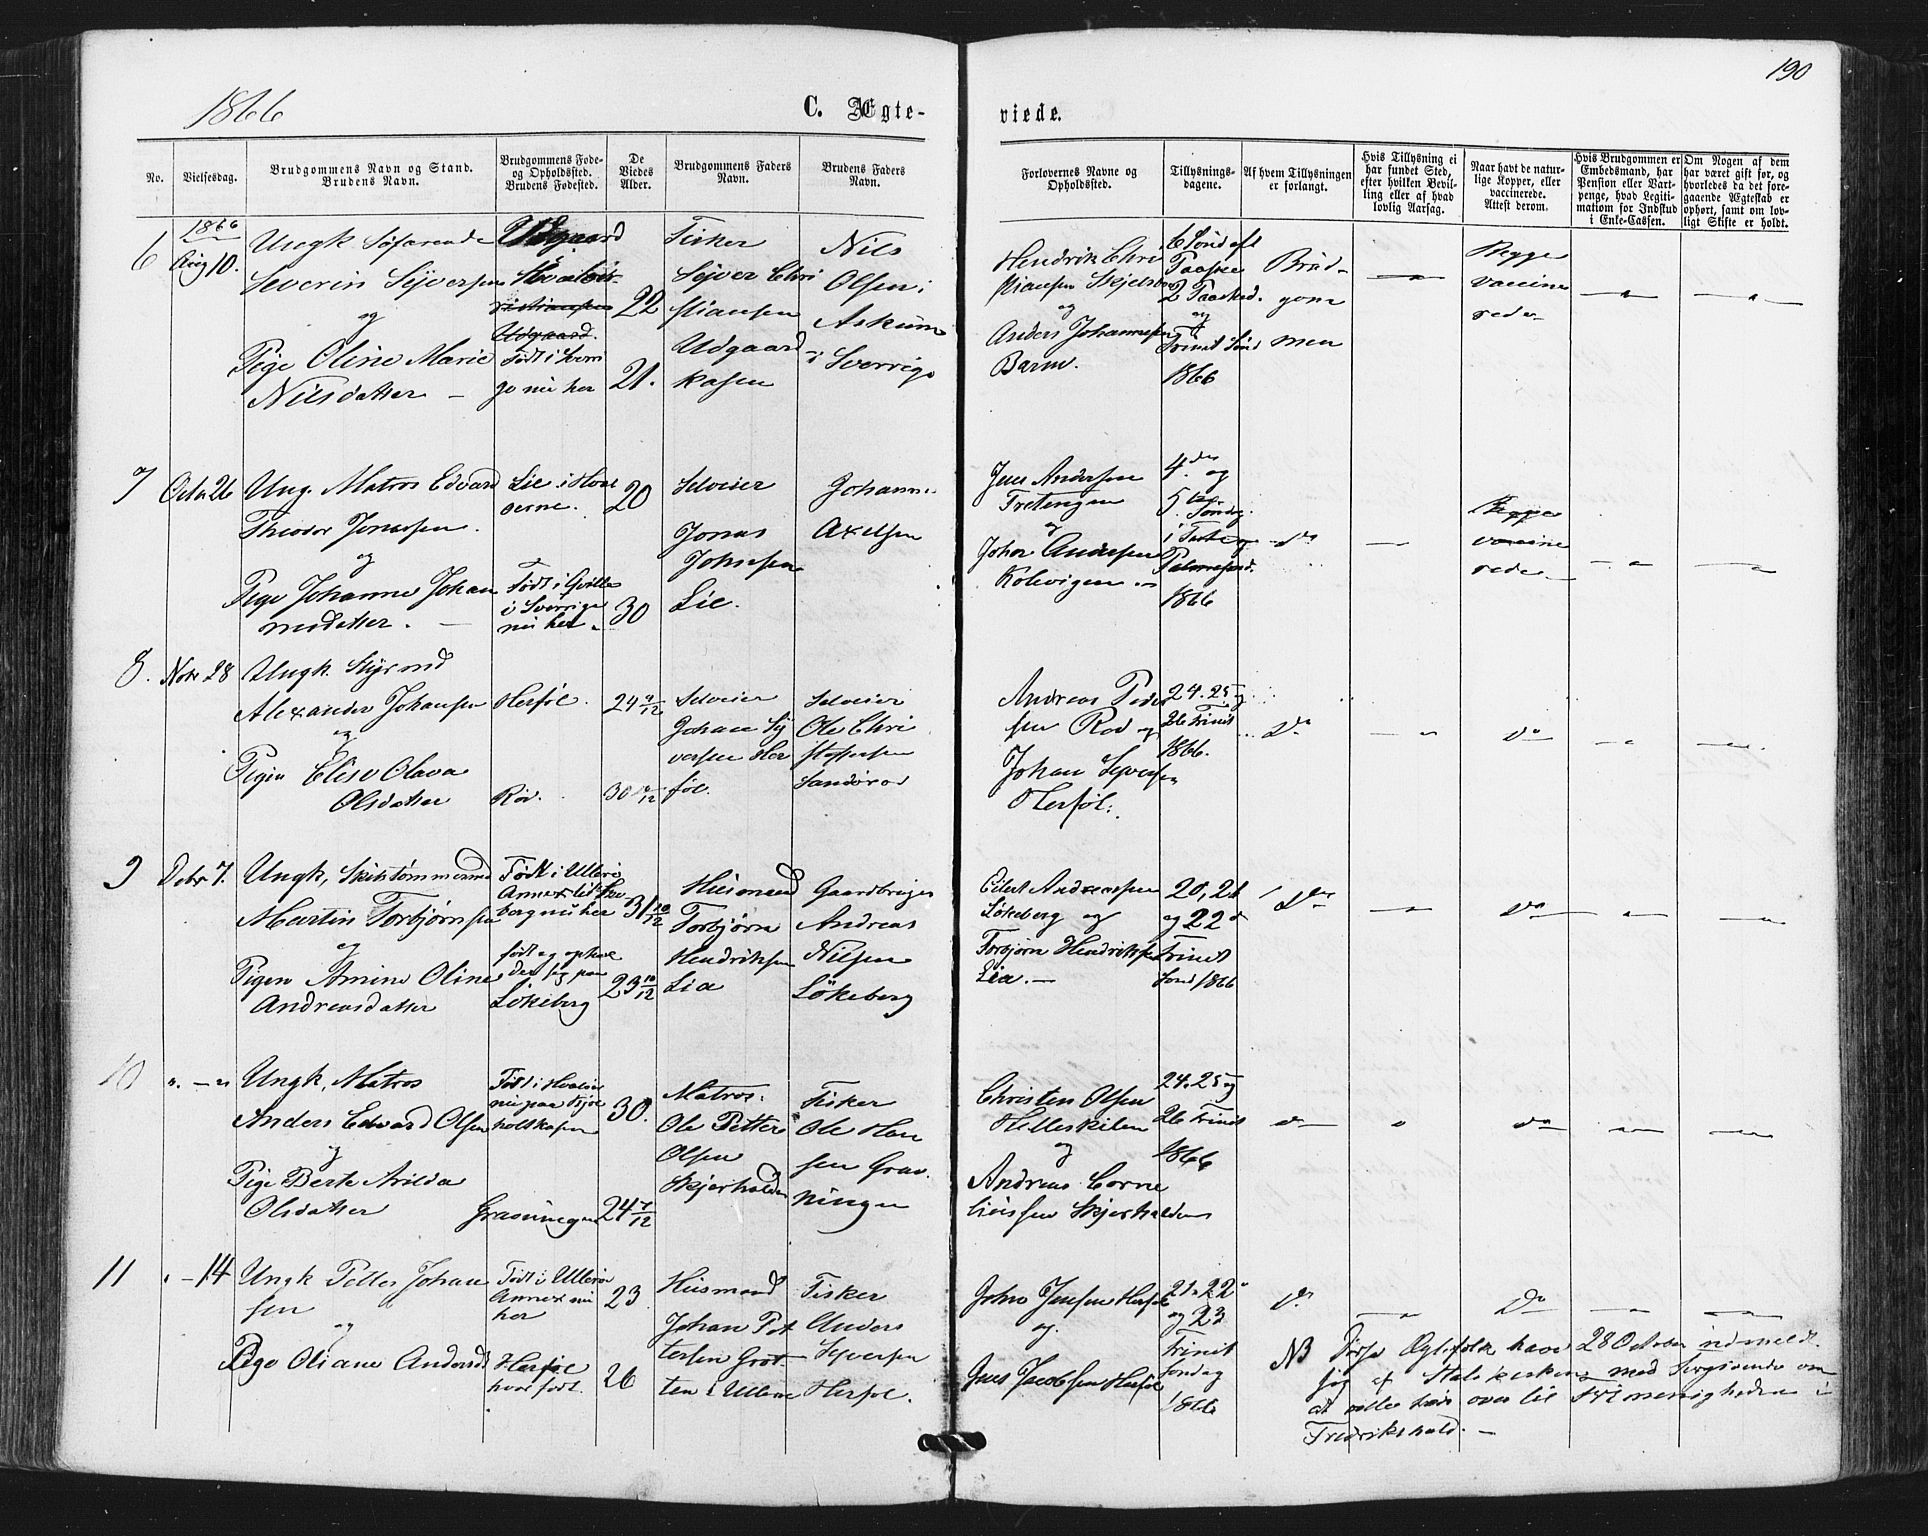 190
1866
C. Ægte-
viede.
No.
Vielsesdag.
Brudgommens Navn og Stand.
Brudens Navn.
Brudgommens Føde-
og Opholdssted.
Brudens Fødested.
De
Viedes
Alder.
Brudgommens Faders
Navn.
Brudens Faders
Navn.
Forlovernes Navne og
Opholdssted.
Tillysnings-
dagene.
Af hvem Tillysningen
er forlangt.
Hvis Tillysning ei
har fundet Sted,
efter hvilken Bevil-
ling eller af hvad
lovlig Aarsag.
Naar havt de natur-
lige Kopper, eller
vaccinerede.
Attest derom.
Hvis Brudgommen er
Embedsmand, har
Pension eller Vart-
penge, hvad Legiti-
mation for Indskud
i Enke-Cassen.
Om Nogen af dem
har været gift før, og
hvorledes da det fore-
gaaende Ægteskab er
ophørt, samt om lov-
ligt Skifte er holdt.
6
1866
Aug 10.
Ungk. Søfarende
Severin Syversen
og
Pige Oline Marie
Nilsdatter —
Udgaard
Udgaard.
Født i Sverri
ge nu her
22
21.
Fisker
Syver Chri
stiansen
Udgaard
kasen
Nils
Olsen i
Askum
i Sverrige
Hendrik Chri
stiansen
og
Anders Johannesen
Barm.
6 Sönd eft
Paaske
2 Paasked.
og
Trinit Sönd
1866
Brud-
gom
men
Begge
vaccine
rede
7
Octr 26
Ung. Matros Edvard
Theodor Jonassen.
og
Pige Johanne Johan
nesdatter. —
Lie i Hval
øerne.
Født i Qville
i Sverrige
nu her
20
30
Selveier
Jonas
Johnsen
Lie.
Johannes
Axelsen
Jens Andersen
Fretengen
og
Johan Andersen
Kolvigen
4. og
5. Söndag
i Faste og
1866
do
Begge
vaccine
rede
8.
Nobr 28
Ungk. Styrmd
Alexander Johansen
og
Pigen Elise Olava
Olsdatter
Herføl.
Rød.
24 9/12
30
Selveier
Johan Sy
versen Her
føl.
Selveier
Ole Chri
stoffersen
Sandørød
Andreas Peder
sen Rød og
Johan Syversen
Herføl.
24. 25 og
26 Trinit
1866.
do
do
9
Debr 7.
Ungk. Skibstømmermd
Martin Torbjørnsen
og
Pigen Amine Oline
Andreasdatter
Født i Ullerø
Annex til Ske
berg nu her
født og ophol
der sig paa
Løkeberg
31 10/12
23 10/12
Husmand
Torbjørn
Hendriksen
Lia
Gaardbruger
Andreas
Nilsen
Løkeberg
Eilert Andreassen
Løkeberg og
Torbjørn Hendriksen
Lia. —
20, 21
og 22 d
Trinit
Sönd 1866
do
do
10
Ungk. Matros
Anders Edvard Olsen
og
Pige Berte Arilda
Olsdatter
Født i Hvaler
nu paa
holtskasen
Gravningen
30.
24 7/12
Matros.
Ole Petter
Olsen
Skjærhalden
Fisker
Ole Han
sen Grav
ningen
Christen Olsen
Helleskilen
og
Andreas Corne
liussen Skjærhalden
24. 25 og
26 Trinit
1866
do
do
11
14
Ungk Petter Johan
sen
og
Pige Oliane Andersd
Født i Ullerø
Annex nu
her
Herføl
hvor født.
23
26
Husmand
Johan Pet
tersen Grot
ten i Ullerø
Fisker
Anders
Syversen
Herføl.
John Jensen Herføl
og
Jens Jacobsen Herføl
21. 22
og 23
Trinit
Søndag
1866
do
do
NB Disse Ægtefolk have 28 October udmeldt
sig af Statskirken med Forgivende om
at ville træde over til Frimenigheden i
Fredrikshald. —